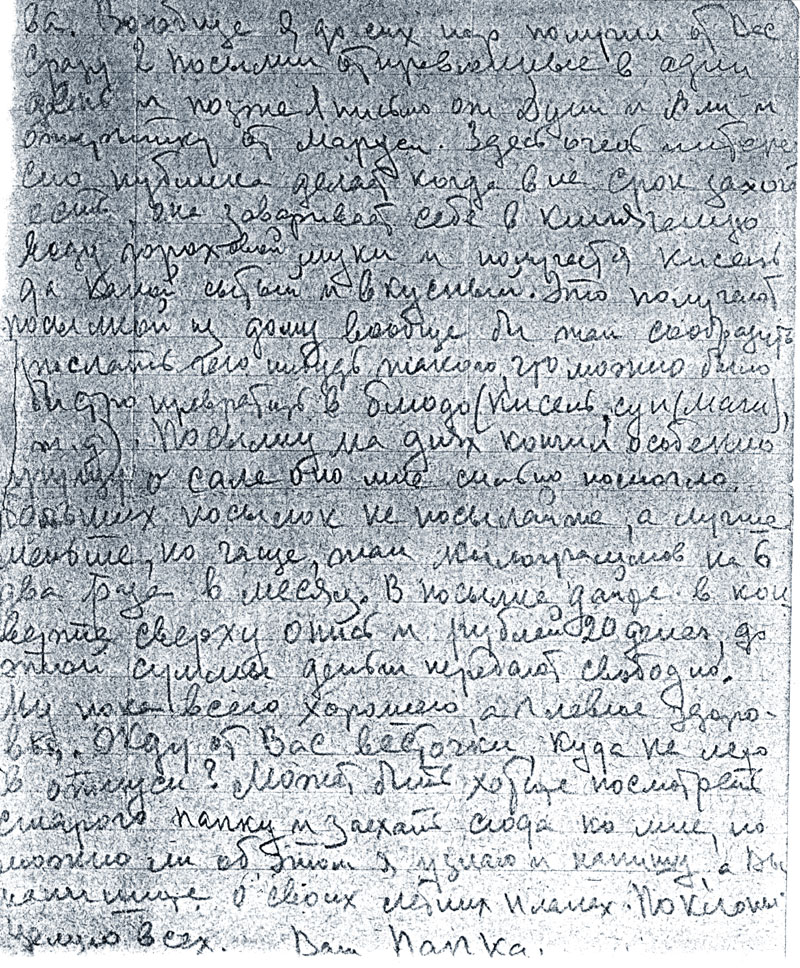 ва. Вообще я до сих пор получил от Вас
сразу 2 посылки отправленные в один
день и позже 1 письмо от Дуси и Али и
открытку от Маруси. Здесь очень интере
сно публика делает когда в не срок захоч
есть, она заваривает себе в кипяченую
воду гороховой муки и получается кисель
да какой сытый и вкусный. Это получают
посылкой из дому вообще бы там сообразить
послать чего нибудь такого, что можно было
быстро превратить в блюдо (кисель, суп (маги),
и т.д). Посылку на днях кончил особенно
о сале оно мне сильно помогло.
Больших посылок не посылайте, а лучше
меньше, но чаще, там килограммов на 6
два раза в месяц. В посылке дайте в кон
верте сверху опись и рублей 20 денег, до
этой суммы деньги передают свободно.
Ну пока всего хорошего, а главное здоро-
вья. Жду от Вас весточки куда на лето
в отпуск? Может быть хотите посмотреть
старого папку и заехать сюда ко мне, но
можно ли об этом я узнаю и напишу, а Вы
напишите о своих летних планах. Поклоны
целую всех. Ваш Папка.